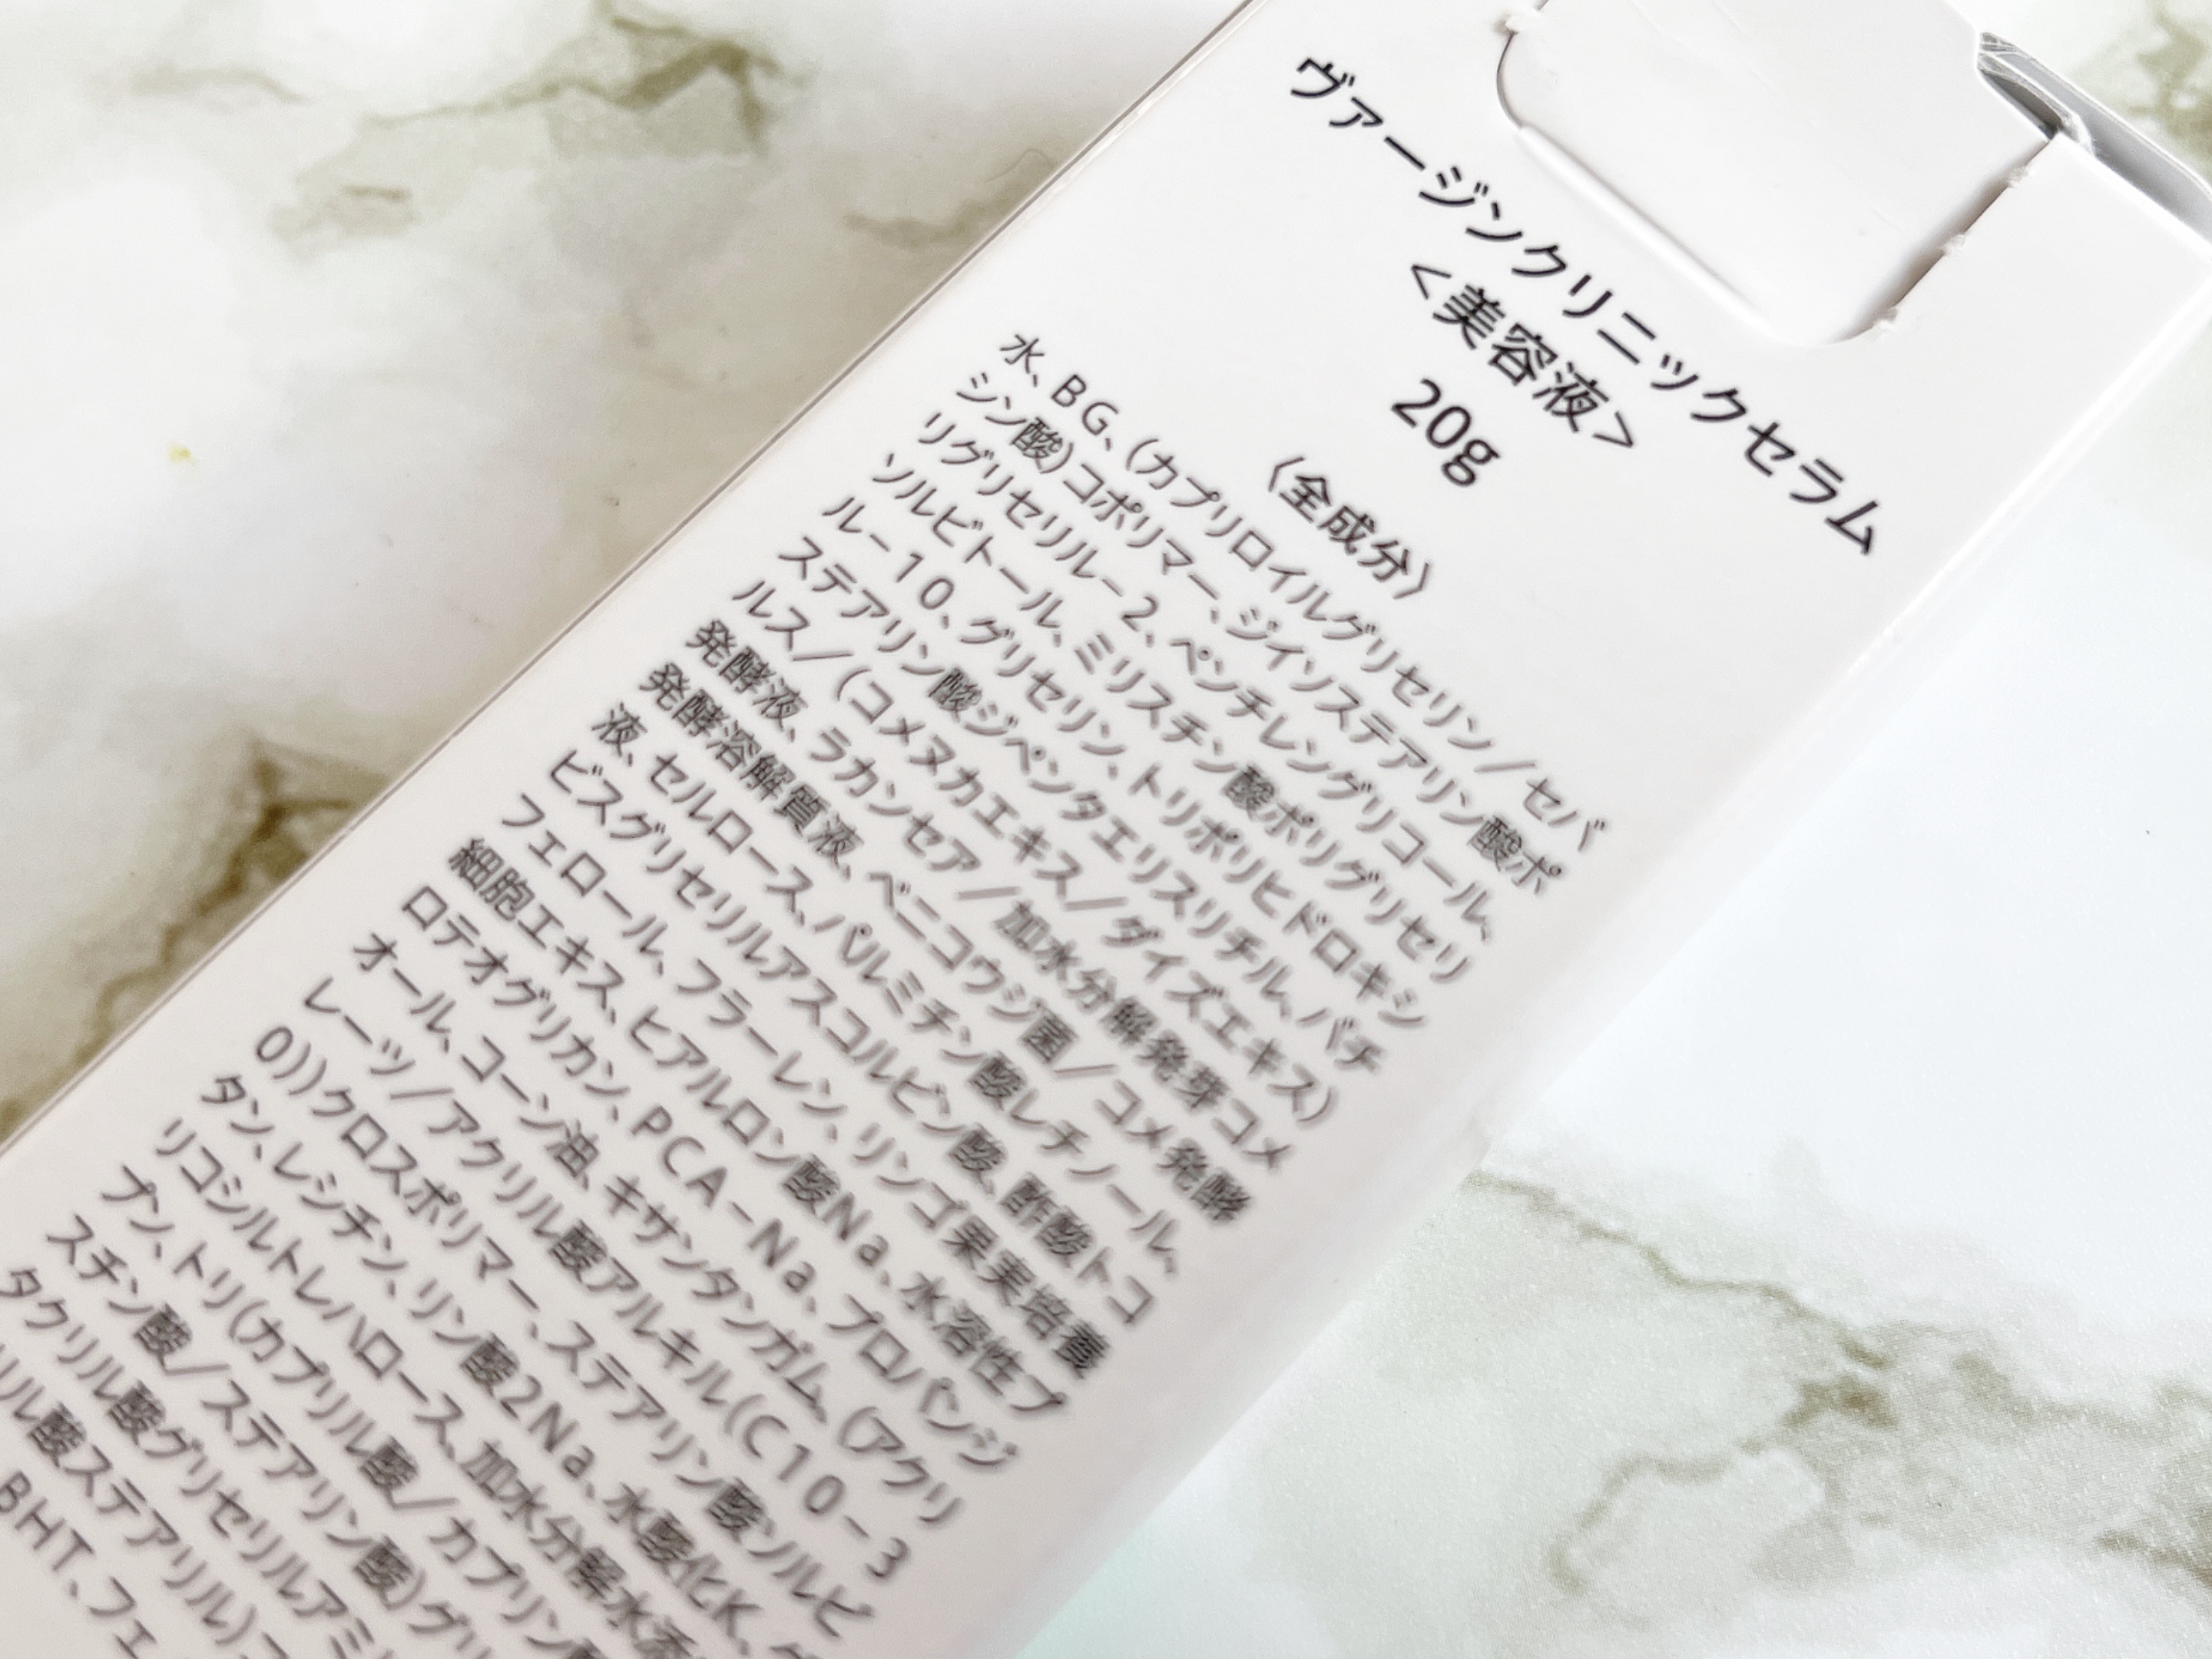 ヴァージンクリニックセラム
<美容液>
20g
〈全成分〉
水、BG、(カプリロイルグリセリン/セバ
シン酸)コポリマー、ジイソステアリン酸ポ
リグリセリル-2、ペンチレングリコール、
ソルビトール、ミリスチン酸ポリグリセリ
ル-10、グリセリン、トリポリヒドロキシ
ステアリン酸ジペンタエリスリチル、バチ
ルス/(コメヌカエキス/ダイズエキス)
発酵液、ラカンセア/加水分解発芽コメ
発酵溶解質液、ベニコウジ菌/コメ発酵
液、セルロース、パルミチン酸レチノール、
ビスグリセリルアスコルビン酸、酢酸トコ
フェロール、フラーレン、リンゴ果実培養
細胞エキス、ヒアルロン酸Na、水溶性プ
ロテオグリカン、PCA-Na、プロパンジ
オール、コーン油、キサンタンガム、(アクリ
レーツ/アクリル酸アルキル(C10-3
0))クロスポリマー、ステアリン酸ソルビ
タン、レシチン、リン酸2Na、水酸化K、グ
リコシルトレハロース、加水分解水添
プン、トリ(カプリル酸/カプリン酸
スチン酸/ステアリン酸)グリ
タクリル酸グリセリルアミ
リル酸ステアリル)コ
BHT、フェ